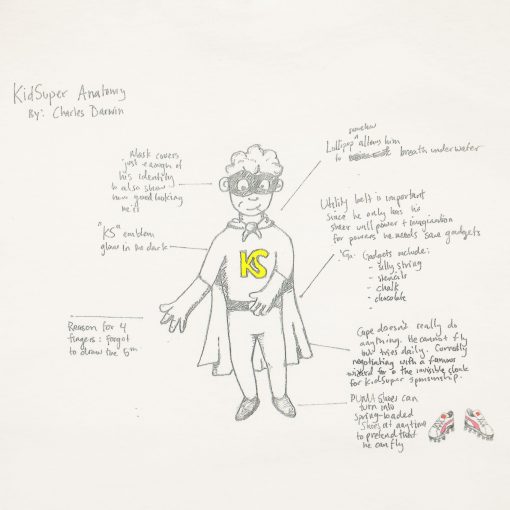 KidSuper Anatomy
By: Charles Darwin
Mask covers
just enough of
his identity
to also show
how good looking
he is
somehow
Lollipop ^ allows him
to breath underwater
"KS" emblem
glow in the dark
Utility belt is important
since he only has his
sheer will power + imagination
for powers he needs some gadgets
Gadgets include:
- silly string
- stencils
- chalk
- chocolate
-
KS
Reason for 4
fingers: forgot
to draw the 5th
Cape doesn't really do
anything. He cannot fly
but tries daily. Currently
negotiating with a famous
wizard for the invisible cloak
for KidSuper sponsorship.
PUMA shoes can
turn into
spring-loaded
shoes at anytime
to pretend that
he can fly